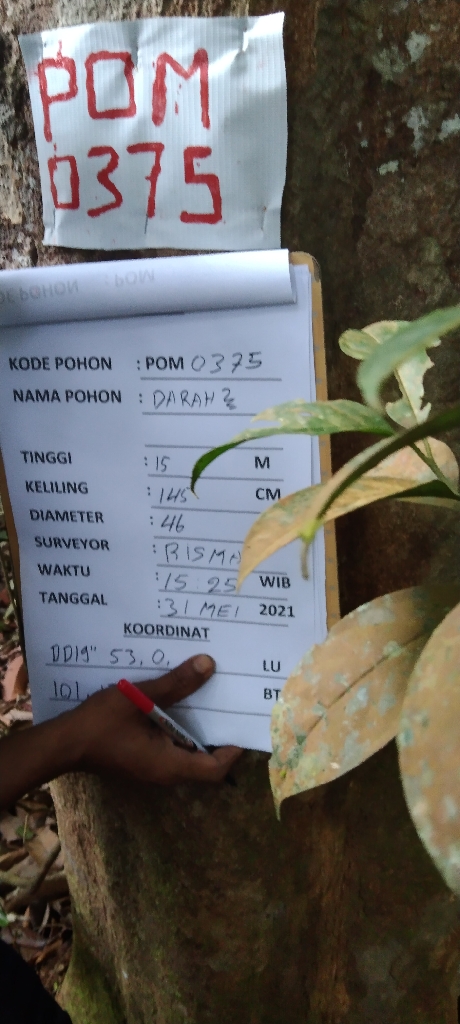 POM
0375
KODE POHON : POM 0375
NAMA POHON : DARAH2
TINGGI : 15 M
KELILING : 145 CM
DIAMETER : 46
SURVEYOR :
WAKTU : 15:25 WIB
TANGGAL : 31 MEI 2021
KOORDINAT
53,0, LU
101, BT